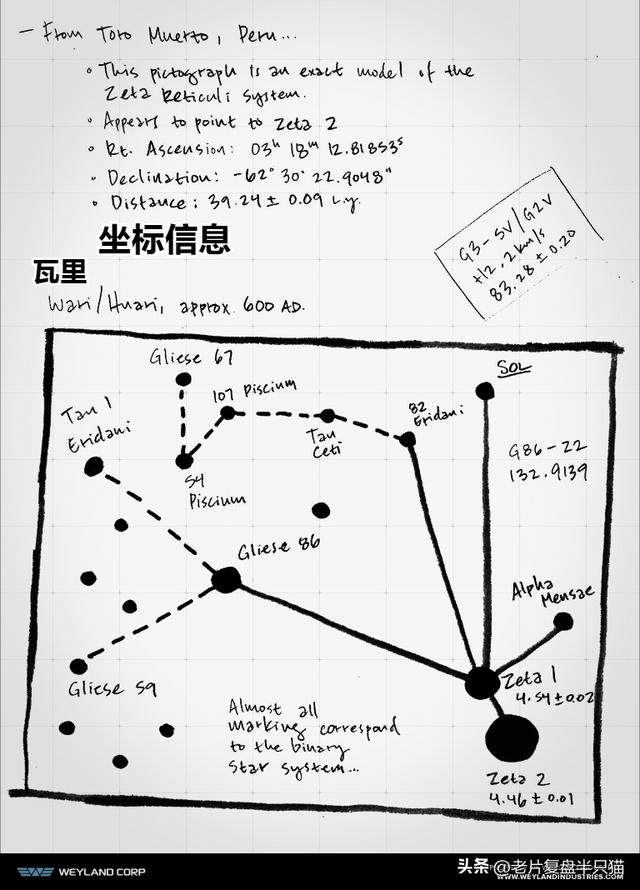 - From Toro Muerto, Peru...
• This pictograph is an exact model of the
Zeta Reticuli system.
• Appears to point to Zeta 2
• Rt. Ascension: 03h 18m 12.81853s
• Declination: -62° 30' 22.9048"
• Distance: 39.24 ± 0.09 l.y.
坐标信息
瓦里
Wari/Huari, approx 600 AD.
G3-5V/G2V
+12.2 km/s
83.28 ± 0.20
Gliese 67
107 Piscium
Sol
Tau 1
Eridani
Tau
Ceti
82
Eridani
G86-22
132.9139
54
Piscium
Gliese 86
Alpha
Mensae
Gliese 59
Zeta 1
4.54 ± 0.02
Almost all
marking correspond
to the binary
star system...
Zeta 2
4.46 ± 0.01
WEYLAND CORP
头条@老片复盘半只猫
WWW.WEYLANDINDUSTRIES.COM